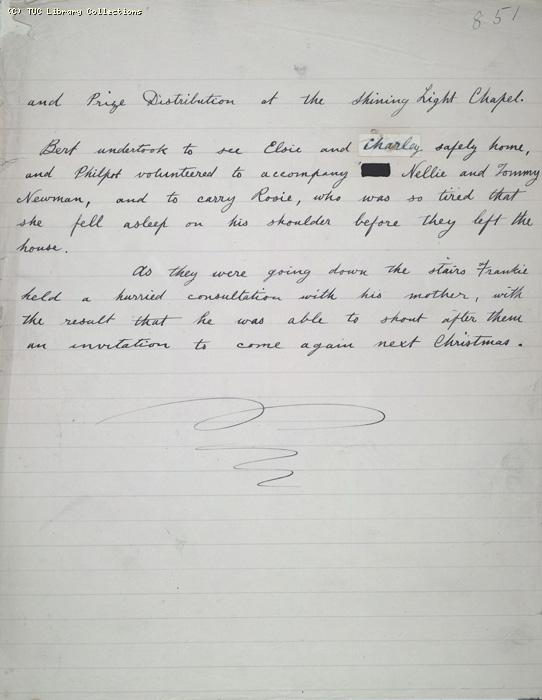 (C) TUC Library Collections
851
and Prize Distribution at the Shining Light Chapel.
Bert undertook to see Elsie and Charley safely home,
and Philpot volunteered to accompany Nellie and Tommy
Newman, and to carry Rosie, who was so tired that
she fell asleep on his shoulder before they left the
house.
As they were going down the stairs Frankie
held a hurried consultation with his mother, with
the result that he was able to shout after them
an invitation to come again next Christmas.